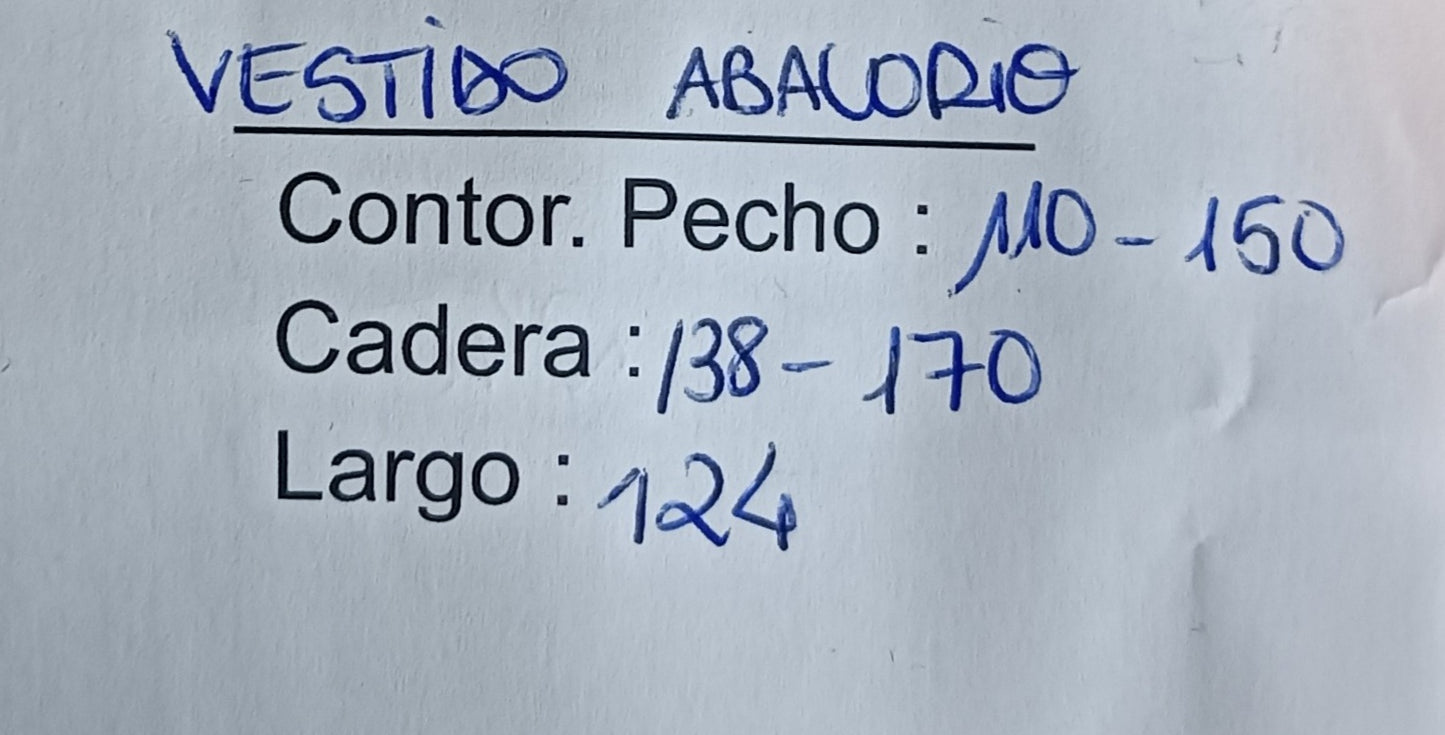 VESTIDO ABALORIO
Contor. Pecho : 110 - 150
Cadera : 138 - 170
Largo : 124